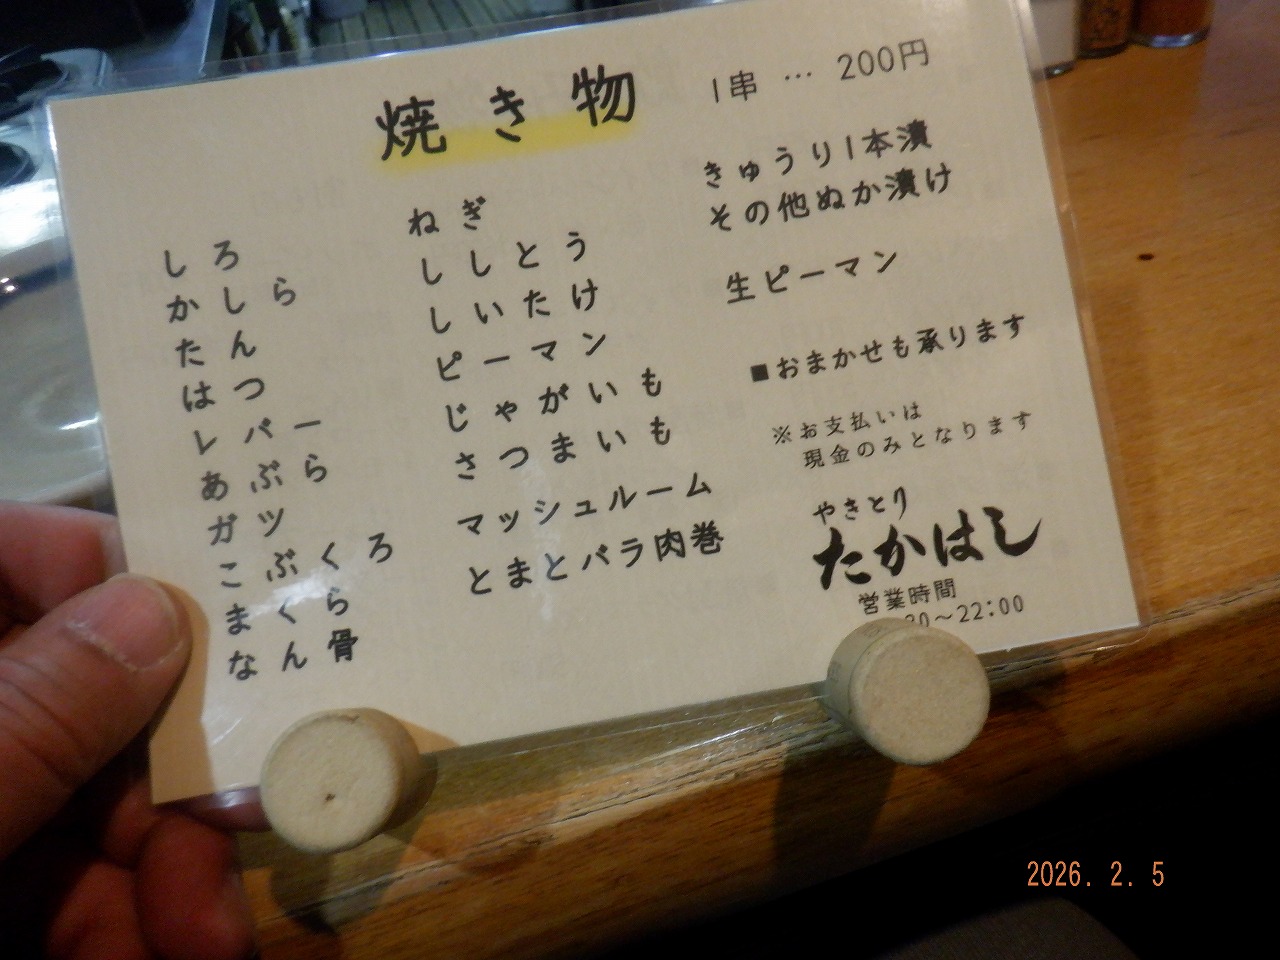 焼き物
1串 … 200円
しろ
かしら
たん
はつ
レバー
あぶら
ガツ
こぶくろ
まくら
なん骨
ねぎ
ししとう
しいたけ
ピーマン
じゃがいも
さつまいも
マッシュルーム
とまとバラ肉巻
きゅうり1本漬
その他ぬか漬け
生ピーマン
■おまかせも承ります
※お支払いは
現金のみとなります
やきとり
たかはし
営業時間
30〜22:00
2026. 2. 5